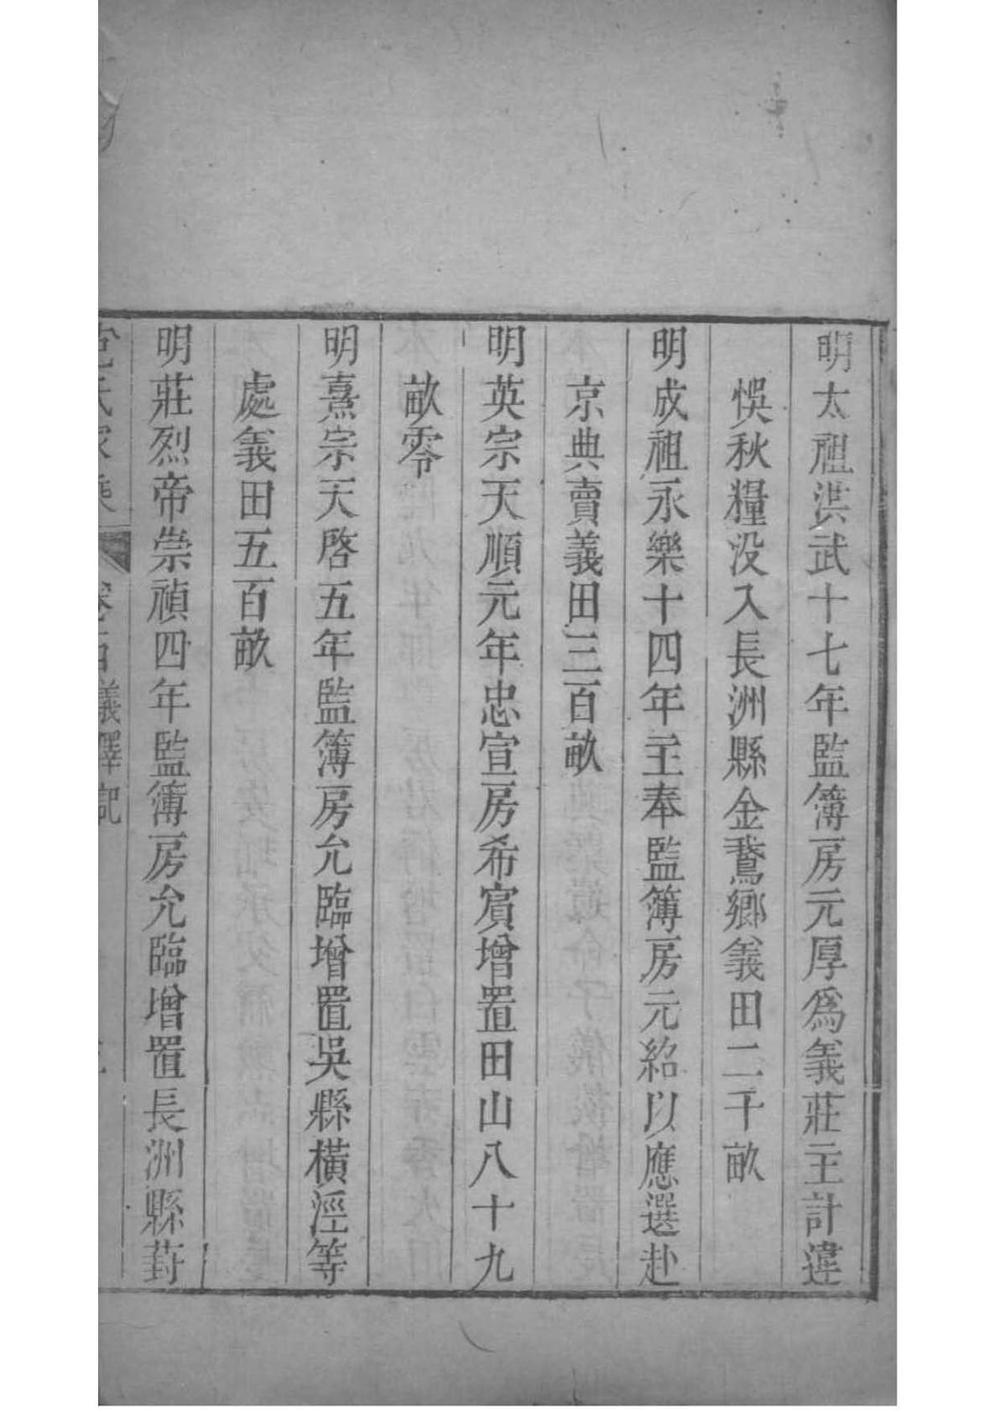 明太祖洪武十七年監簿房元厚爲義莊主計違
悞秋糧没入長洲縣金鵞鄉義田二千畝
明成祖永樂十四年主奉監簿房元紹以應選赴
京典賣義田三百畝
明英宗天順元年忠宣房希賔增置田山八十九
畝零
明熹宗天啓五年監簿房允臨增置吳縣橫涇等
處義田五百畝
明莊烈帝崇禎四年監簿房允臨增置長洲縣葑
氏家乘 卷 義澤記